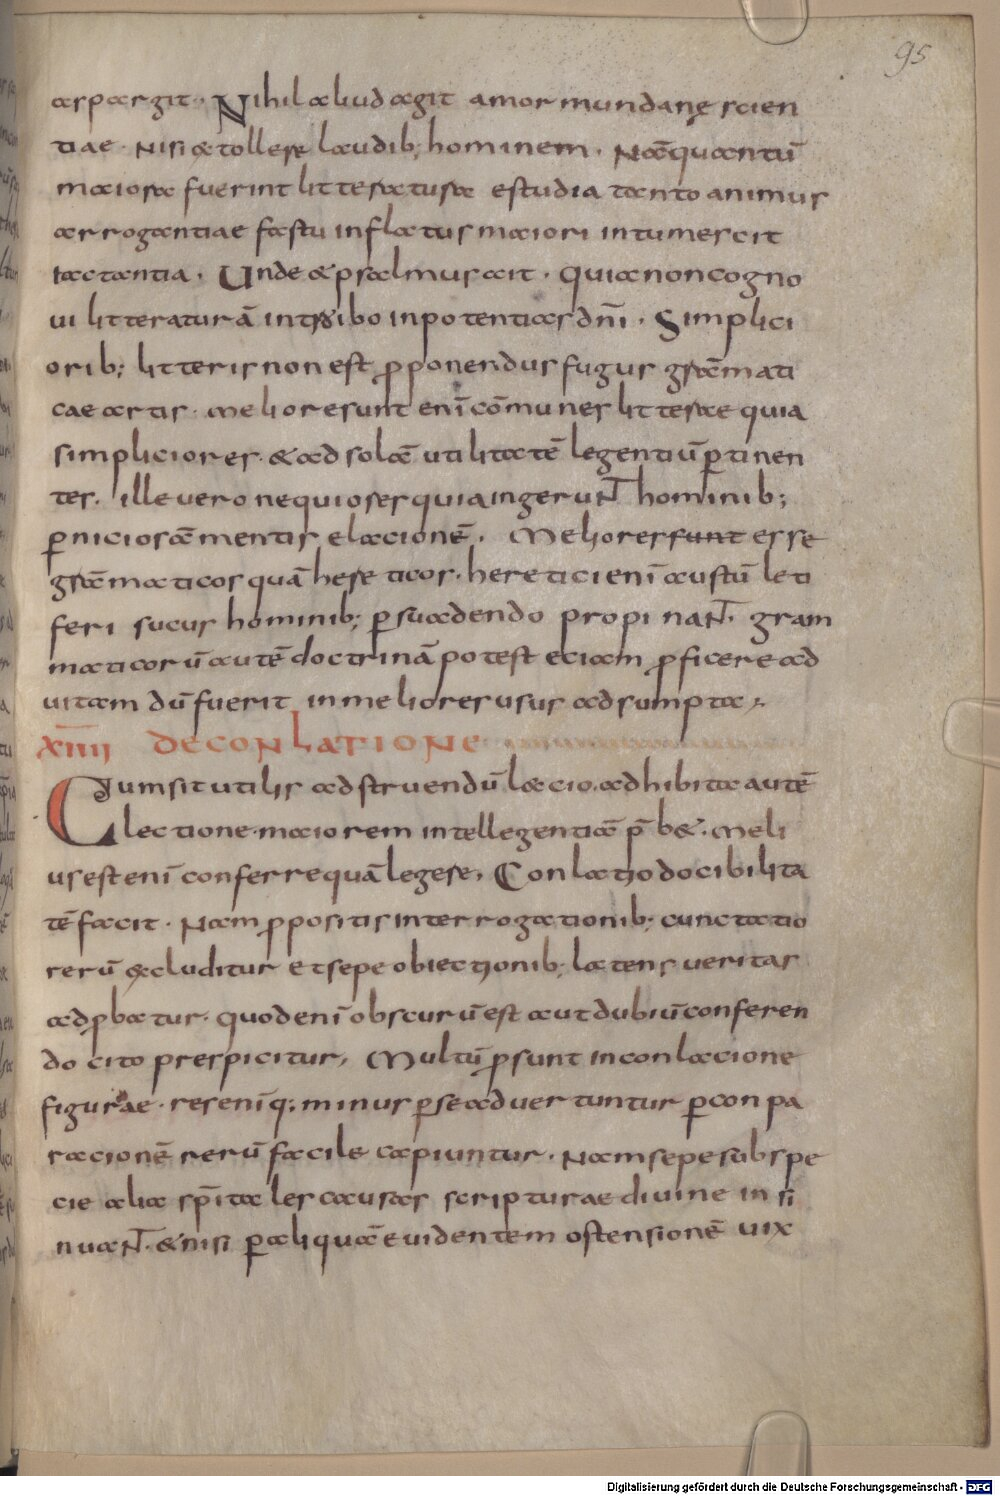 95
aspargit. Nihil aliud agit amor mundanę scien
tiae. Nisi extollere laudib; hominem. Nā quantū
maiora fuerint litteraturae studia tanto animus
arrogantiae fastu inflatus maiori intumescit
iactantia. Unde & psalmus ait. quia non cogno
ui litteraturā introibo in potentias dn̄i. Simplici
orib; litteris non est p̄ponendus fugus grāmati
cae artis. meliores sunt enī cōmunes litterae quia
simpliciores. & ad solā utilitatē legentiū ꝑtinen
tes. ille uero nequiores quia ingeruɴt hominib;
ꝑniciosā mentis elacionē. Meliores sunt esse
grāmaticos quā hereticos. heretici enī austū leti
feri sucus hominib; ꝑsuadendo propinaɴt. gram
maticorū autē doctrinā potest eciam ꝓficere ad
uitam dū fuerit in meliores usus adsumpta.
xiiii DE CONLATIONE
Cum sit utilis ad struendū laccio. adhibita autē
lectione. maiorem intellegentiā p̄b&. Meli
us est enī conferre quā legere. Conlatio docibilita
tē facit. Nam ꝓpositis interrogationib; cunctatio
rerū excluditur et sepe obiectionib; latens ueritas
adꝓbatur. quod enī obscurū est aut dubiū conferen
do cito prespicitur. Multū ꝓsunt in conlaccione
figurae. res enī q; minus ꝑ se aduertuntur ꝑ conpa
racionē rerū facile capiuntur. Nam sepe sub spe
cie alia sp̄itales causas scripturae diuine in si
nuaɴt. & nisi ꝑ aliquā euidentem ostensionē uix
Digitalisierung gefördert durch die Deutsche Forschungsgemeinschaft - DFG